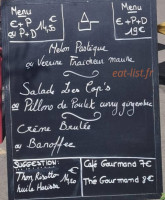 Menu
E + P
ou P+D
14,50€
Menu
E + P + D
19€
Melon Pastèque
ou Verrine Fraîcheur
eat-list.fr
Salade Les Cop's
ou Pillons de Poulet curry gingembre
Crème Brulée
ou Banoffee
SUGGESTION:
Thon Risotto
huile
Café Gourmand 7€
Thé Gourmand 8€